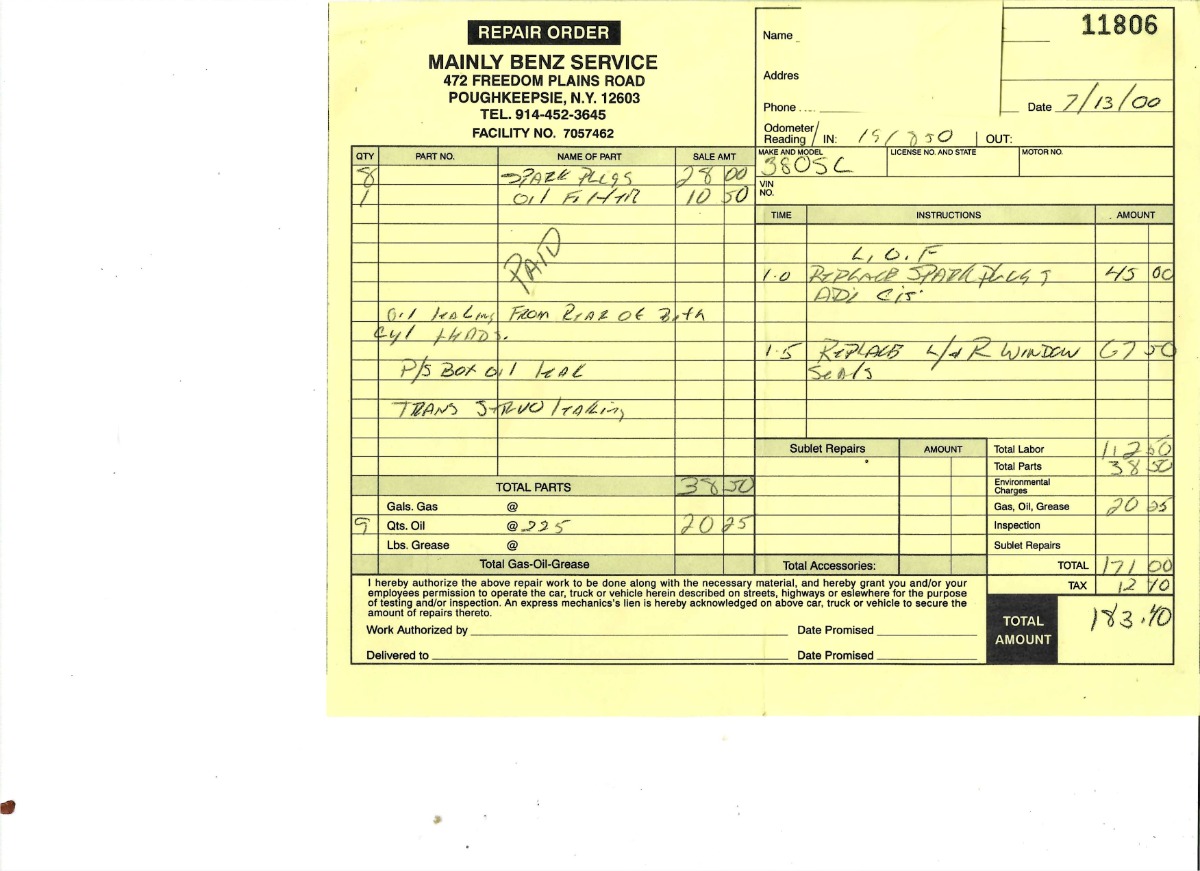 REPAIR ORDER
MAINLY BENZ SERVICE
472 FREEDOM PLAINS ROAD
POUGHKEEPSIE, N.Y. 12603
TEL. 914-452-3645
FACILITY NO. 7057462
11806
Name
Addres
Phone
Date 7/13/00
Odometer/
Reading / IN: 191850 | OUT:
MAKE AND MODEL LICENSE NO. AND STATE MOTOR NO.
380SL
VIN
NO.
QTY PART NO. NAME OF PART SALE AMT
8 SPARK PLUGS 28 00
1 OIL FILTER 10 50
PAID
OIL leaking FROM REAR OF Both
Cyl HEADS.
P/S BOX OIL leak
TRANS SERVO leaking
TOTAL PARTS 38 50
Gals. Gas @
9 Qts. Oil @ 225 20 25
Lbs. Grease @
Total Gas-Oil-Grease
TIME INSTRUCTIONS AMOUNT
L.O.F
1.0 REPLACE SPARK PLUGS 45 00
ADJ
1.5 REPLACE L/d R WINDOW 67 50
Seals
Sublet Repairs AMOUNT
Total Accessories:
Total Labor 112 50
Total Parts 38 50
Environmental
Charges
Gas, Oil, Grease 20 25
Inspection
Sublet Repairs
TOTAL 171 00
TAX 12 40
TOTAL
AMOUNT 183.40
I hereby authorize the above repair work to be done along with the necessary material, and hereby grant you and/or your
employees permission to operate the car, truck or vehicle herein described on streets, highways or eslewhere for the purpose
of testing and/or inspection. An express mechanic's lien is hereby acknowledged on above car, truck or vehicle to secure the
amount of repairs thereto.
Work Authorized by Date Promised
Delivered to Date Promised